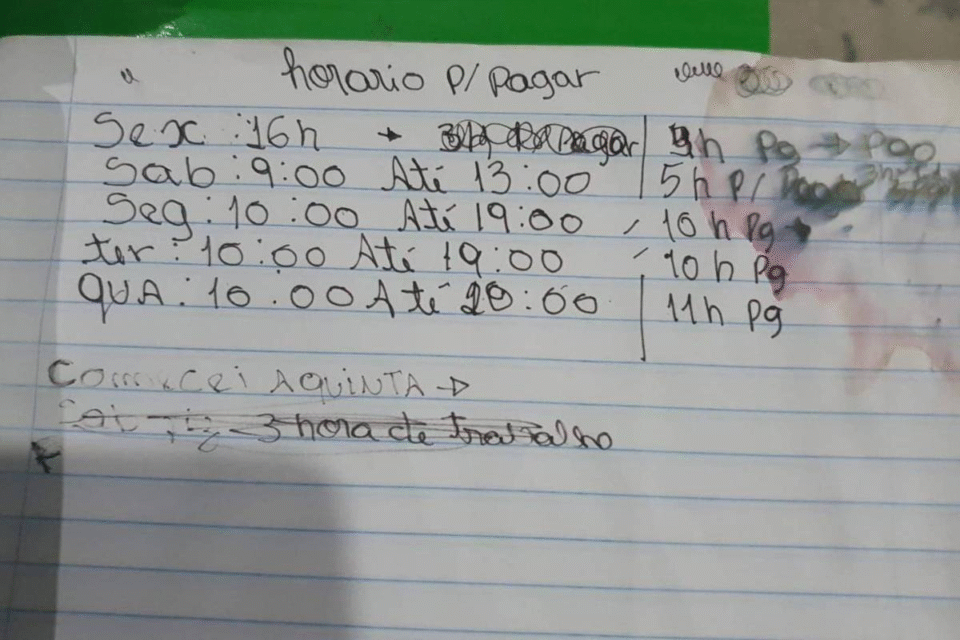 horario P/ pagar
Sex : 16h → pagar 4h Pg → PGO
Sab : 9:00 Até 13:00 5h P/
Seg : 10 :00 Até 19:00 10h Pg
ter : 10:00 Até 19:00 10h Pg
QUA : 10.00 Até 20:00 11h Pg
Comecei AQUiNTA →
3 hora de trabalho